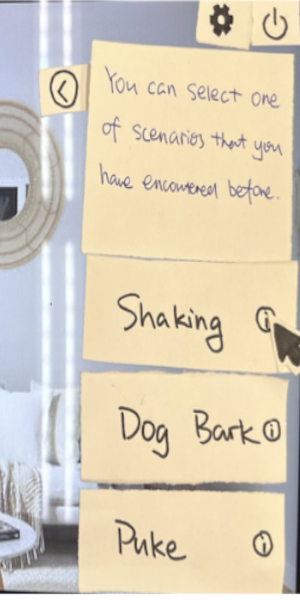 You can select one
of scenarios that you
have encountered before.
Shaking i
Dog Bark i
Puke i